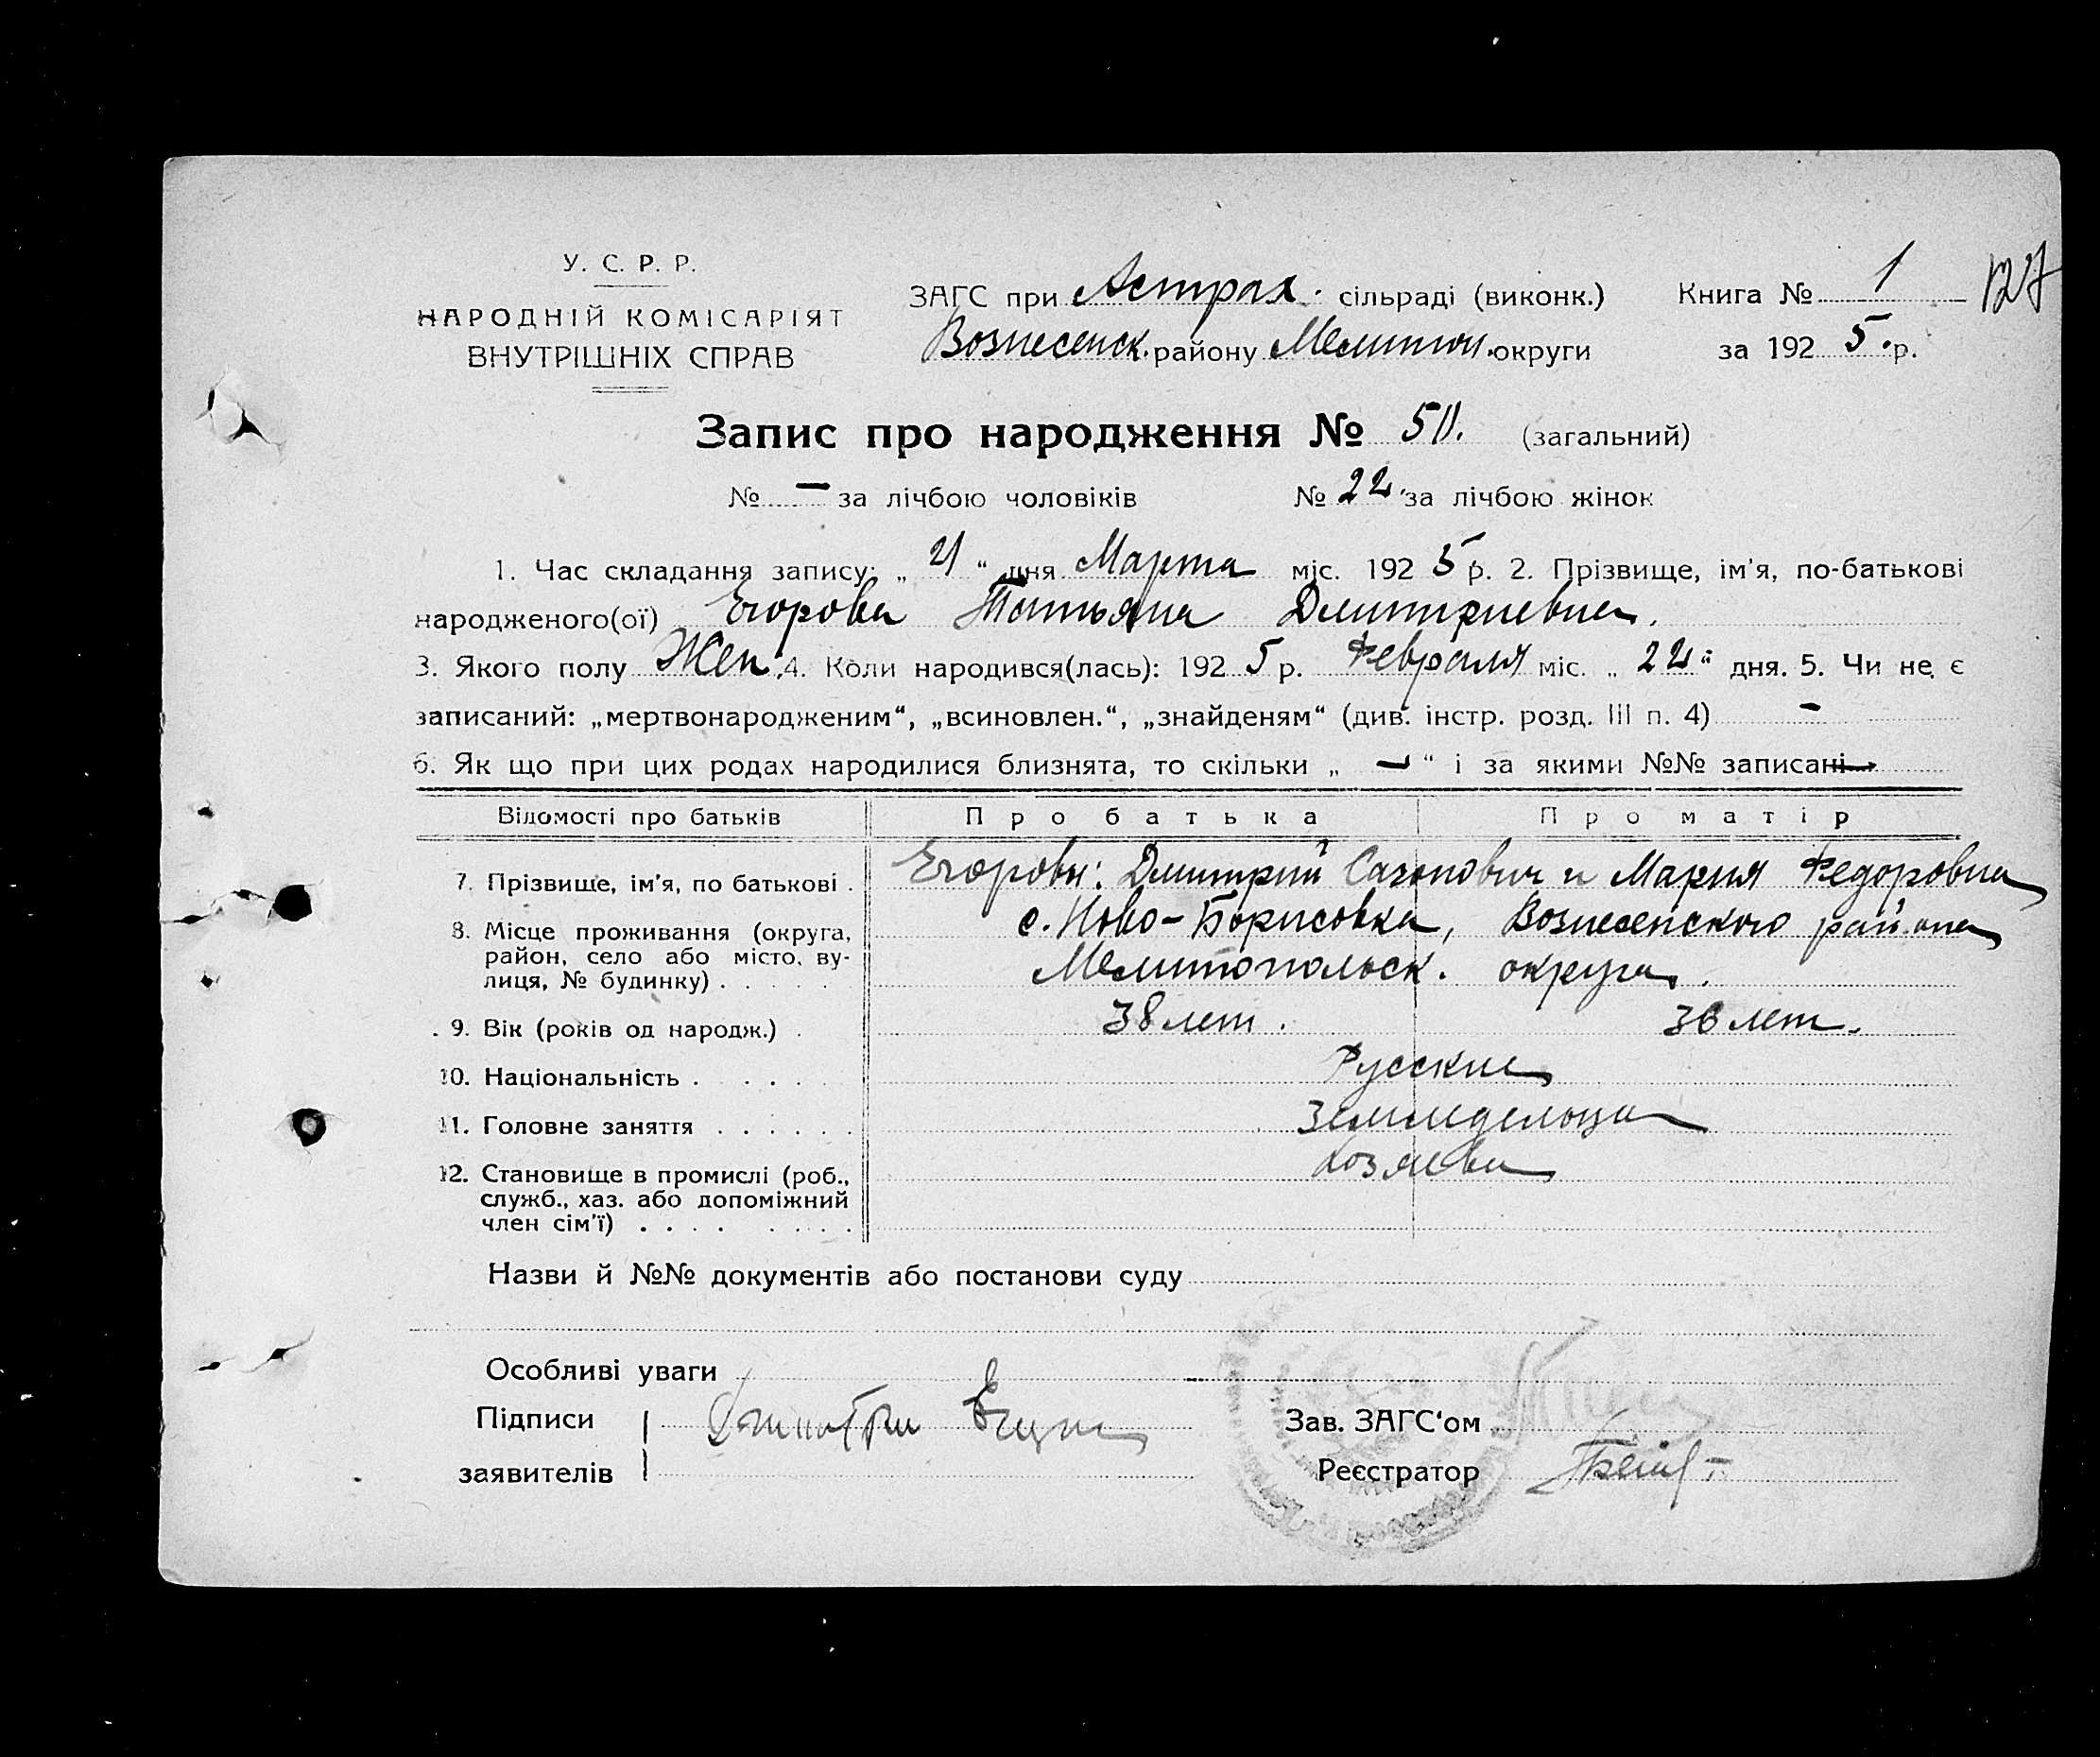 У. С. Р. Р.
НАРОДНІЙ КОМІСАРІЯТ
ВНУТРІШНІХ СПРАВ
ЗАГС при Астрах. сільраді (виконк.)
Вознесенск. району Мелитоп. округи
Книга № 1
127
за 192 5 р.
Запис про народження № 50. (загальний)
№ — за лічбою чоловіків № 22. за лічбою жінок
1. Час складання запису: „ 21 “ дня Марта міс. 192 5 р. 2. Прізвище, ім'я, по-батькові
народженого(ої) Егорова Татьяна Дмитриевна.
3. Якого полу Жен. 4. Коли народився(лась): 192 5 р. Февраля міс. „ 22 “ дня. 5. Чи не є
записаний: „мертвонародженим“, „всиновлен.“, „знайденям“ (див. інстр. розд. III п. 4) —
6. Як що при цих родах народилися близнята, то скільки „ — “ і за якими №№ записані —
Відомості про батьків Про батька Про матір
7. Прізвище, ім'я, по батькові . Егоровы: Дмитрий Сазонович и Мария Федоровна
8. Місце проживання (округа, с. Ново-Борисовка, Вознесенского района
район, село або місто, ву-
лиця, № будинку) . . . . . Мелитопольск. округа.
9. Вік (років од народж.) . 38 лет. 36 лет.
10. Національність . . . . . Русские
11. Головне заняття . . . . . . Земледельцы
12. Становище в промислі (роб., хозяева
служб., хаз. або допоміжний
член сім'ї) . . . . . . . .
Назви й №№ документів або постанови суду
Особливі уваги
Підписи Дминатри
заявителів
Зав. ЗАГС‘ом
Реєстратор